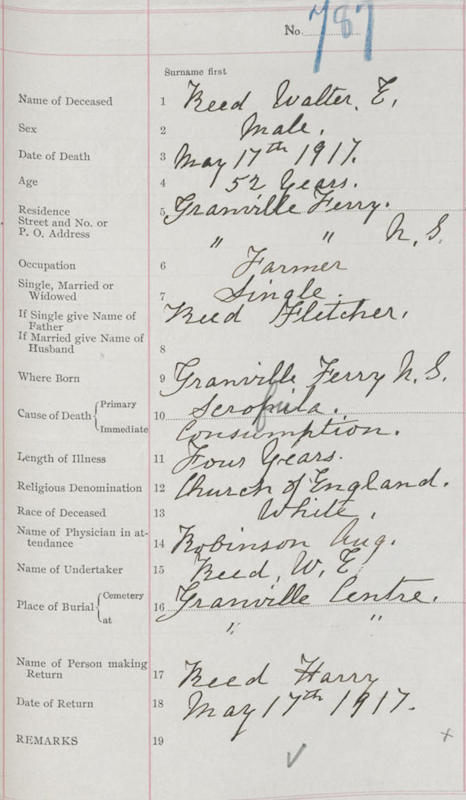 No. 787
Surname first
Name of Deceased 1 Reed Walter. E.
Sex 2 Male.
Date of Death 3 May 17th 1917.
Age 4 52 Years.
Residence 5 Granville Ferry.
Street and No. or
P. O. Address " " N. S.
Occupation 6 Farmer
Single, Married or
Widowed 7 Single.
If Single give Name of
Father Reed Fletcher.
If Married give Name of
Husband 8
Where Born 9 Granville Ferry N. S.
Cause of Death { Primary 10 Scrofula.
Immediate Consumption.
Length of Illness 11 Four Years.
Religious Denomination 12 Church of England.
Race of Deceased 13 White.
Name of Physician in at-
tendance 14 Robinson Aug.
Name of Undertaker 15 Reed, W. E
Place of Burial { Cemetery 16 Granville Centre.
at " "
Name of Person making
Return 17 Reed Harry
Date of Return 18 May 17th 1917.
REMARKS 19